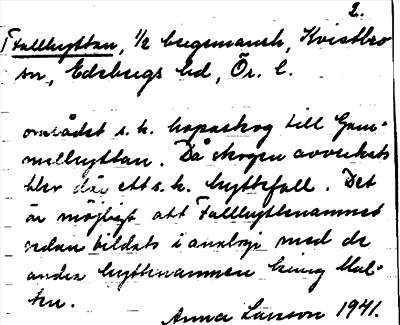 2.
Fallhyttan, 1/2 bergsmansh, Kvistbro
sn, Edsbergs hd, Ör. l.
området s.k. hopaskog till Gam-
melhyttan. Då skogen avverkats
blev där ett s.k. hyttefall. Det
är möjligt att Fallhyttenamnet
sedan bildats i analogi med de
andra hyttenamnen kring Hul-
ten.
Anna Larsson 1941.